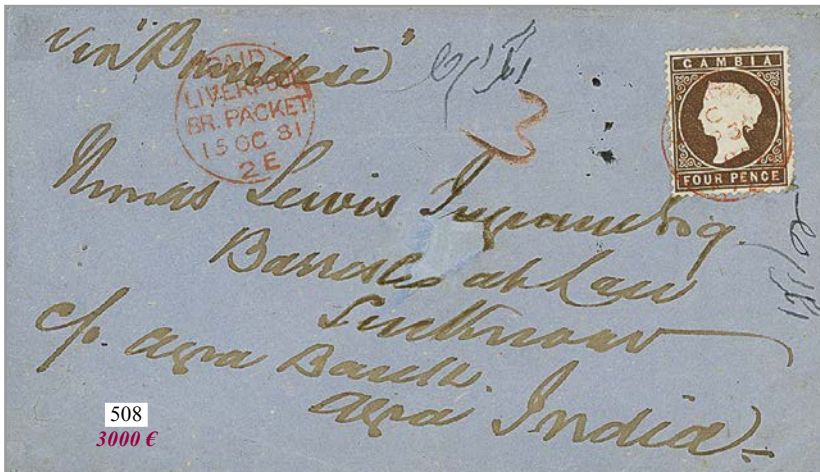 via "Brindisi"
PAID
LIVERPOOL
BR. PACKET
15 OC 81
2 E
3
GAMBIA
FOUR PENCE
Thomas Lewis Ingram Esq.
Barrister at Law
Lucknow
c/o. Agra Bank.
Agra India
508
3000 €